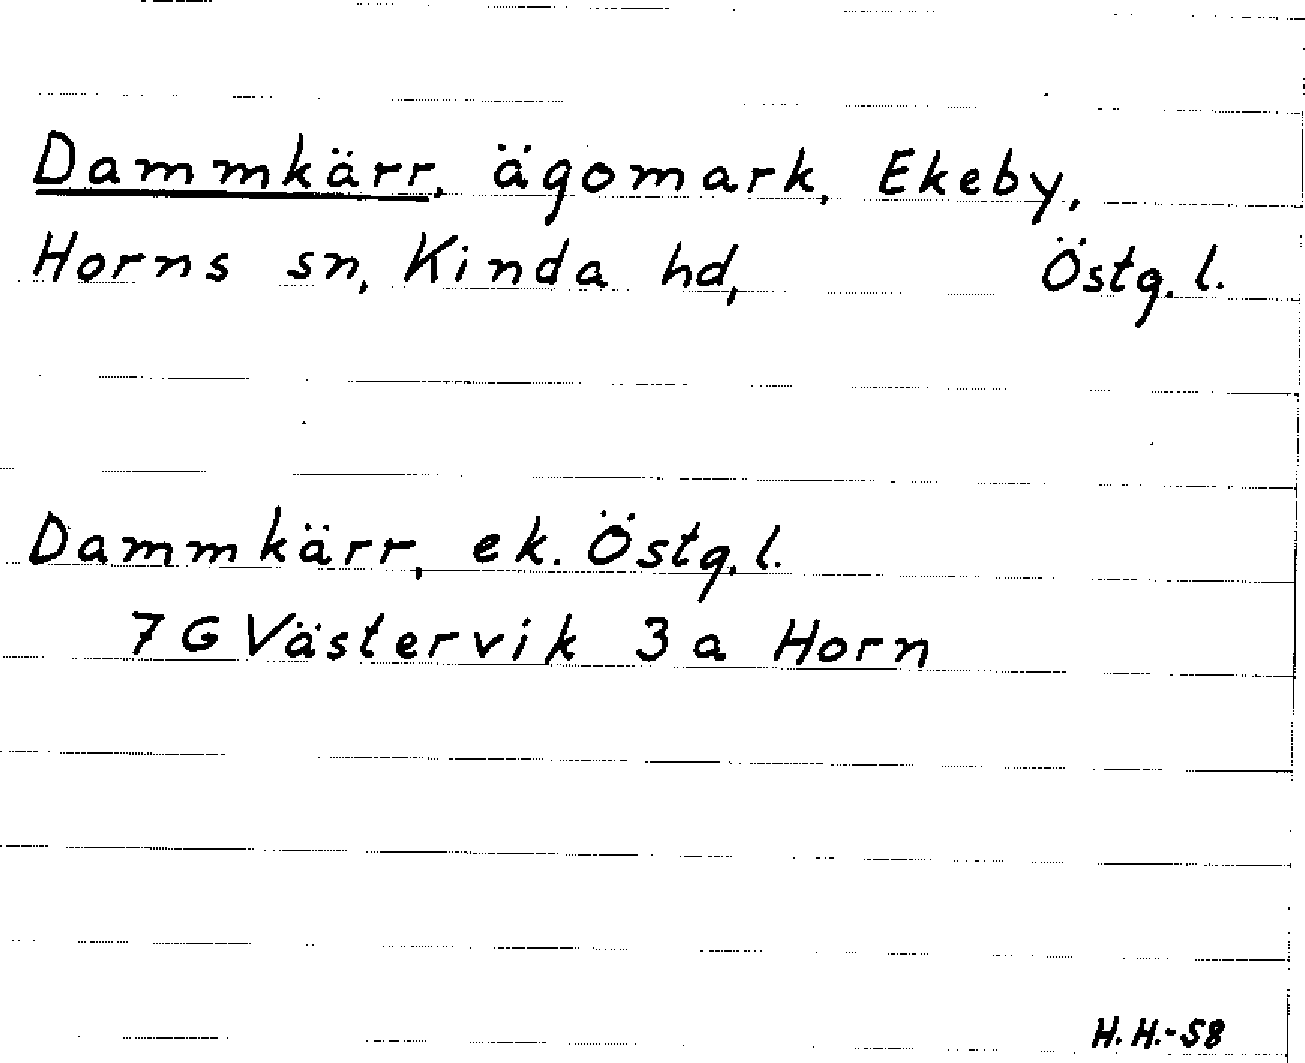 Dammkärr, ägomark, Ekeby,
Horns sn, Kinda hd, Östg. l.
Dammkärr, ek. Östg. l.
7 G Västervik 3 a Horn
H. H.-58